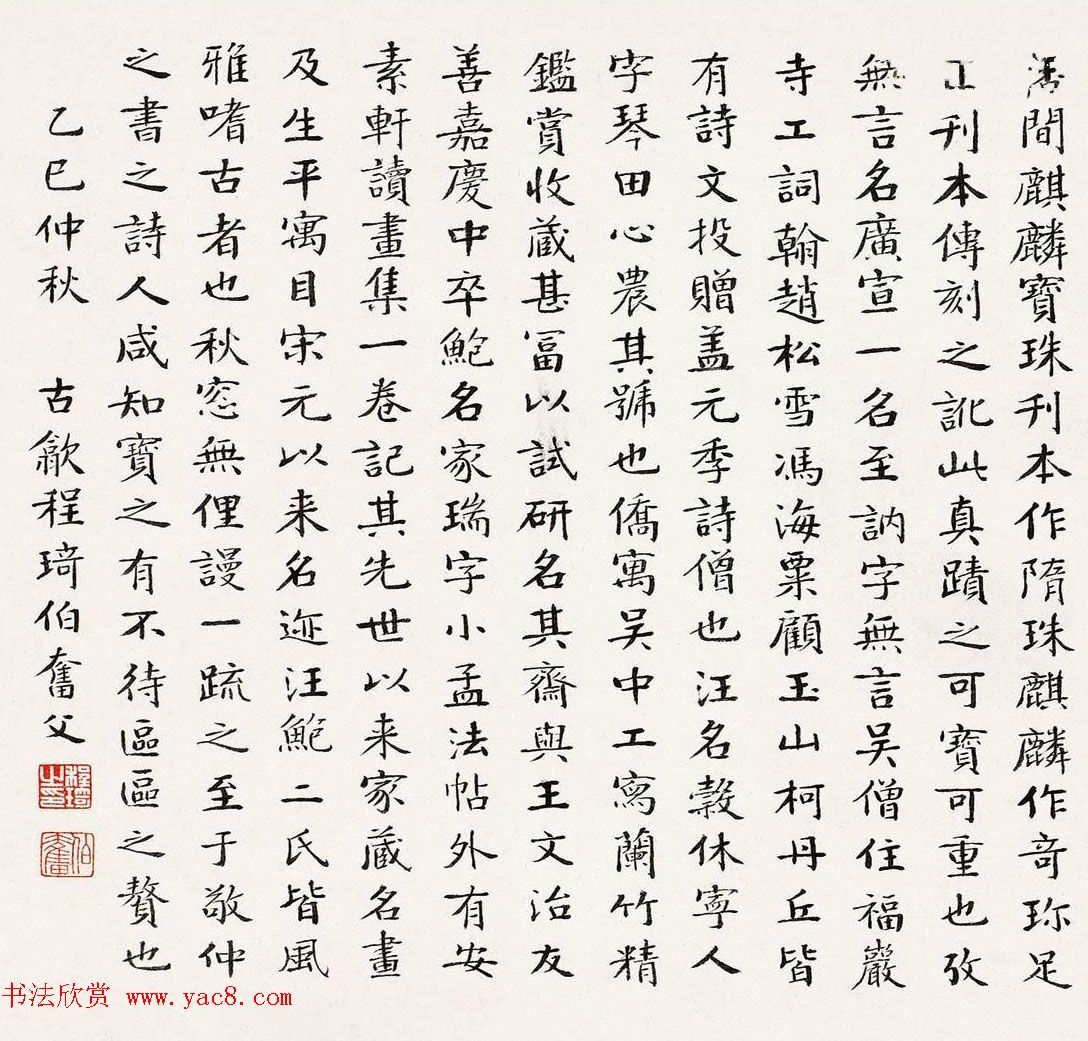 間麒麟寶珠刊本作隋珠麒麟作奇珎足
正刊本傳刻之訛此真蹟之可寶可重也攷
無言名廣宣一名至訥字無言吴僧住福巖
寺工詞翰趙松雪馮海粟顧玉山柯丹丘皆
有詩文投贈盖元季詩僧也汪名穀休寧人
字琴田心農其號也僑寓吴中工寫蘭竹精
鑑賞收蔵甚冨以試研名其齋與王文治友
善嘉慶中卒鮑名家瑞字小孟法帖外有安
素軒讀畫集一卷記其先世以来家蔵名畫
及生平寓目宋元以来名迹汪鮑二氏皆風
雅嗜古者也秋窓無俚謾一疏之至于敬仲
之書之詩人咸知寶之有不待區區之贅也
乙巳仲秋 古歙程琦伯奮父
程琦之印
伯奮
书法欣赏 www.yac8.com